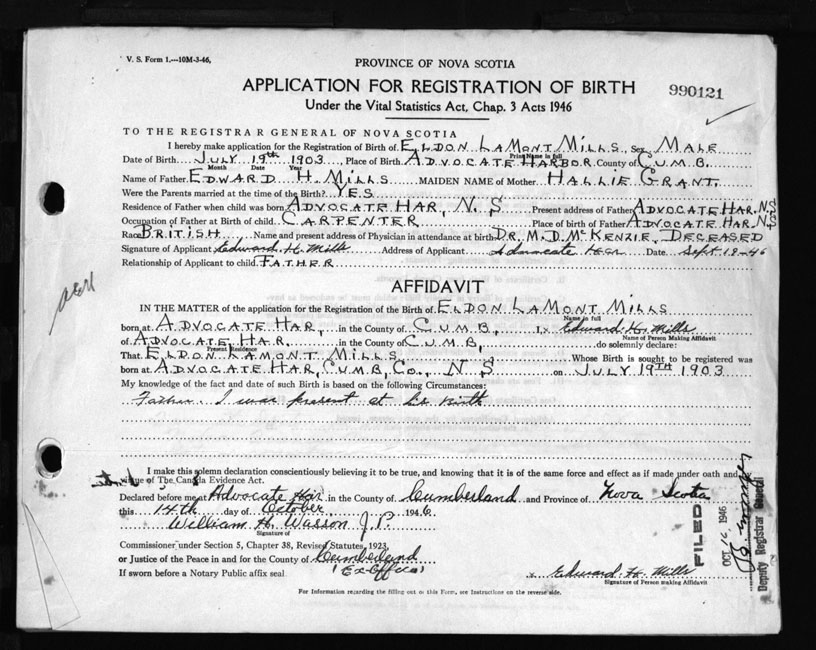 V. S. Form 1.—10M-3-46,
PROVINCE OF NOVA SCOTIA
APPLICATION FOR REGISTRATION OF BIRTH
990121
Under the Vital Statistics Act, Chap. 3 Acts 1946
TO THE REGISTRAR GENERAL OF NOVA SCOTIA
I hereby make application for the Registration of Birth of ELDON LAMONT MILLS Sex MALE
Print Name in full
Date of Birth JULY 19TH 1903, Place of Birth ADVOCATE HARBOR County of CUMB.
Month Date Year
Name of Father EDWARD H. MILLS MAIDEN NAME of Mother HALLIE GRANT.
Were the Parents married at the time of the Birth? YES
Residence of Father when child was born ADVOCATE HAR, N. S Present address of Father ADVOCATE HAR. N.S
Occupation of Father at Birth of child CARPENTER Place of birth of Father ADVOCATE HAR. N.S
Race BRITISH Name and present address of Physician in attendance at birth DR. M. D. MCKENZIE, DECEASED
Signature of Applicant Edward H. Mills Address of Applicant Advocate Har Date Sept 19-46
Relationship of Applicant to child FATHER
AFFIDAVIT
IN THE MATTER of the application for the Registration of the Birth of ELDON LAMONT MILLS
Name in full
born at ADVOCATE HAR, in the County of CUMB, I, Edward H. Mills
Name of Person Making Affidavit
of ADVOCATE HAR. in the County of CUMB, do solemnly declare:
Present Residence
That ELDON LAMONT MILLS Whose Birth is sought to be registered was
born at ADVOCATE HAR, CUMB, CO., N. S on JULY 19TH 1903
My knowledge of the fact and date of such Birth is based on the following Circumstances:
Father. I was present at his birth
I make this solemn declaration conscientiously believing it to be true, and knowing that it is of the same force and effect as if made under oath and
virtue of The Canada Evidence Act.
Declared before me at Advocate Har in the County of Cumberland and Province of Nova Scotia
this 14th day of October 1946
William H. Wasson J.P.
Signature of
Commissioner under Section 5, Chapter 38, Revised Statutes, 1923,
or Justice of the Peace in and for the County of Cumberland
(Ex Officio)
If sworn before a Notary Public affix seal
Edward H. Mills
Signature of Person Making Affidavit
For Information regarding the filling out of this Form, see Instructions on the reverse side.
FILED
OCT 16 1946
Deputy Registrar General